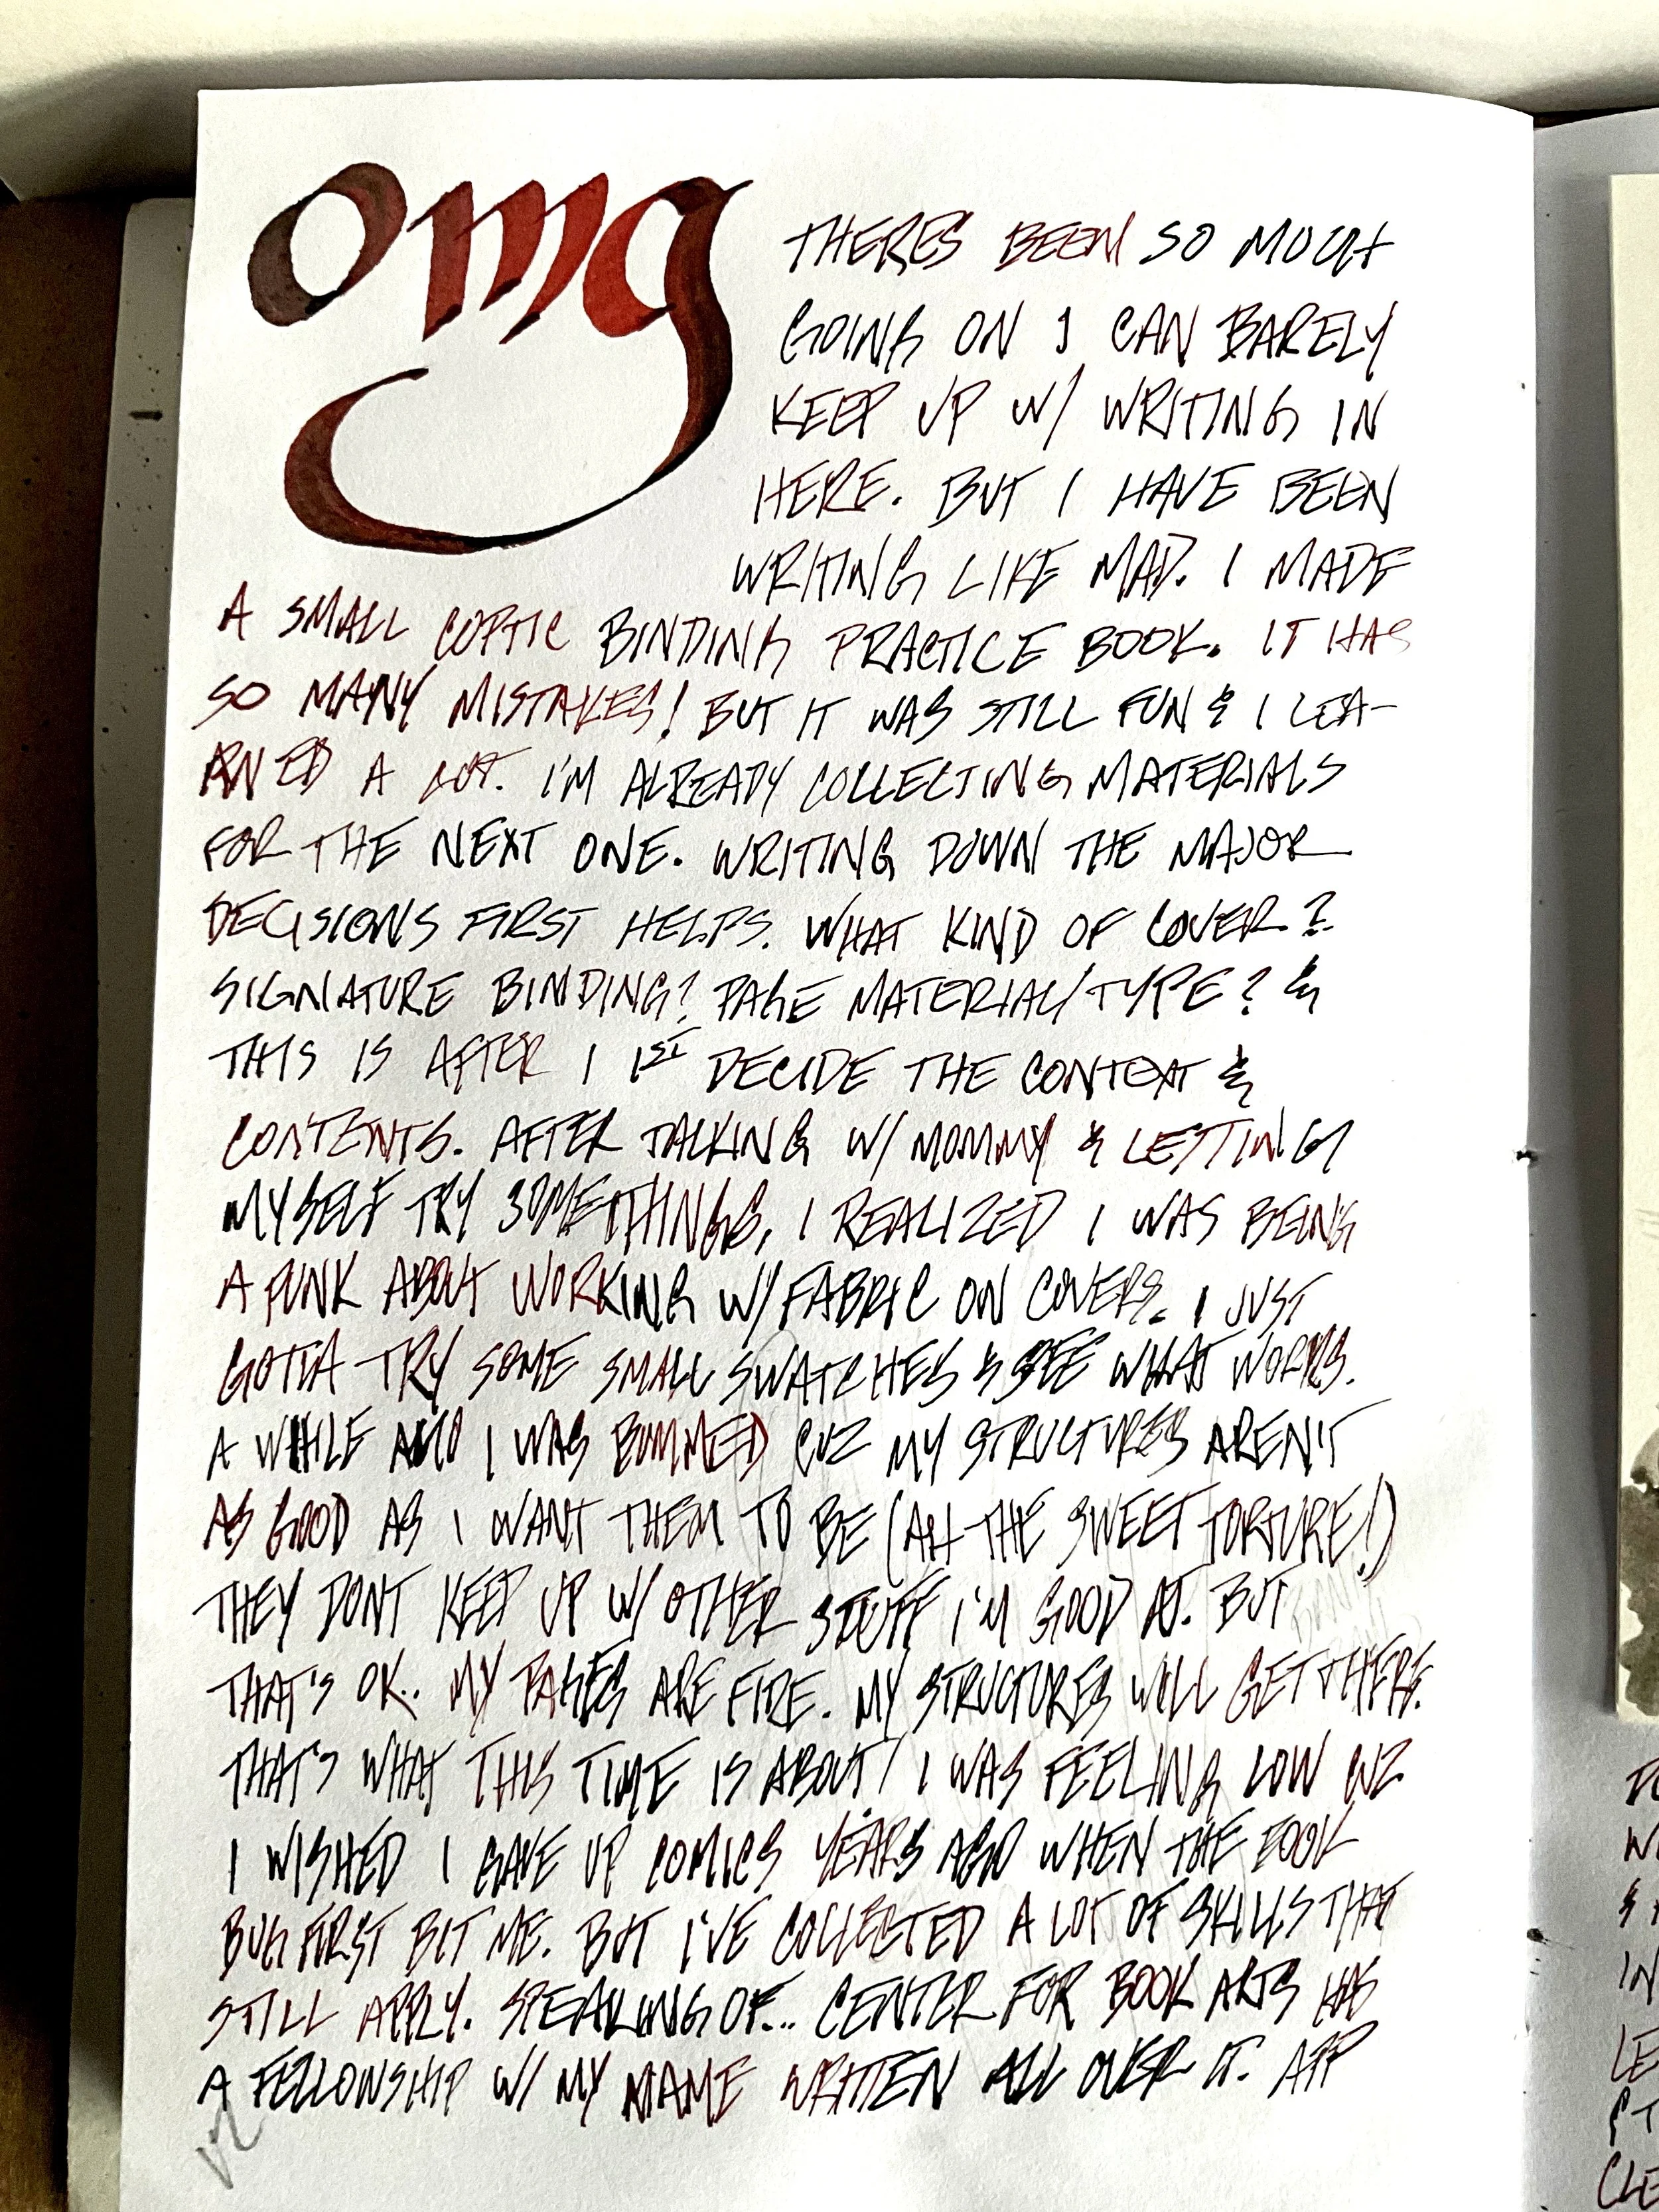 omg
THERES BEEN SO MUCH
GOING ON I CAN BARELY
KEEP UP W/ WRITING IN
HERE. BUT I HAVE BEEN
WRITING LIKE MAD. I MADE
A SMALL COPTIC BINDING PRACTICE BOOK. IT HAS
SO MANY MISTAKES! BUT IT WAS STILL FUN & I LEA-
RNED A LOT. I'M ALREADY COLLECTING MATERIALS
FOR THE NEXT ONE. WRITING DOWN THE MAJOR
DECISIONS FIRST HELPS. WHAT KIND OF COVER?
SIGNATURE BINDING? PAGE MATERIAL/TYPE? &
THIS IS AFTER I 1ST DECIDE THE CONTEXT &
CONTENTS. AFTER TALKING W/ MOMMY & LETTING
MYSELF TRY SOMETHINGS, I REALIZED I WAS BEING
A PUNK ABOUT WORKING W/ FABRIC ON COVERS. I JUST
GOTTA TRY SOME SMALL SWATCHES & SEE WHAT WORKS.
A WHILE AGO I WAS BUMMED CUZ MY STRUCTURES AREN'T
AS GOOD AS I WANT THEM TO BE (AH THE SWEET TORTURE!)
THEY DONT KEEP UP W/ OTHER STUFF I'M GOOD AT. BUT
THAT'S OK. MY PAGES ARE FIRE. MY STRUCTURES WILL GET THERE.
THAT'S WHAT THIS TIME IS ABOUT! I WAS FEELING LOW CUZ
I WISHED I GAVE UP COMICS YEARS AGO WHEN THE BOOK
BUG FIRST BIT ME. BUT I'VE COLLECTED A LOT OF SKILLS THAT
STILL APPLY. SPEAKING OF... CENTER FOR BOOK ARTS HAS
A FELLOWSHIP W/ MY NAME WRITTEN ALL OVER IT. APP